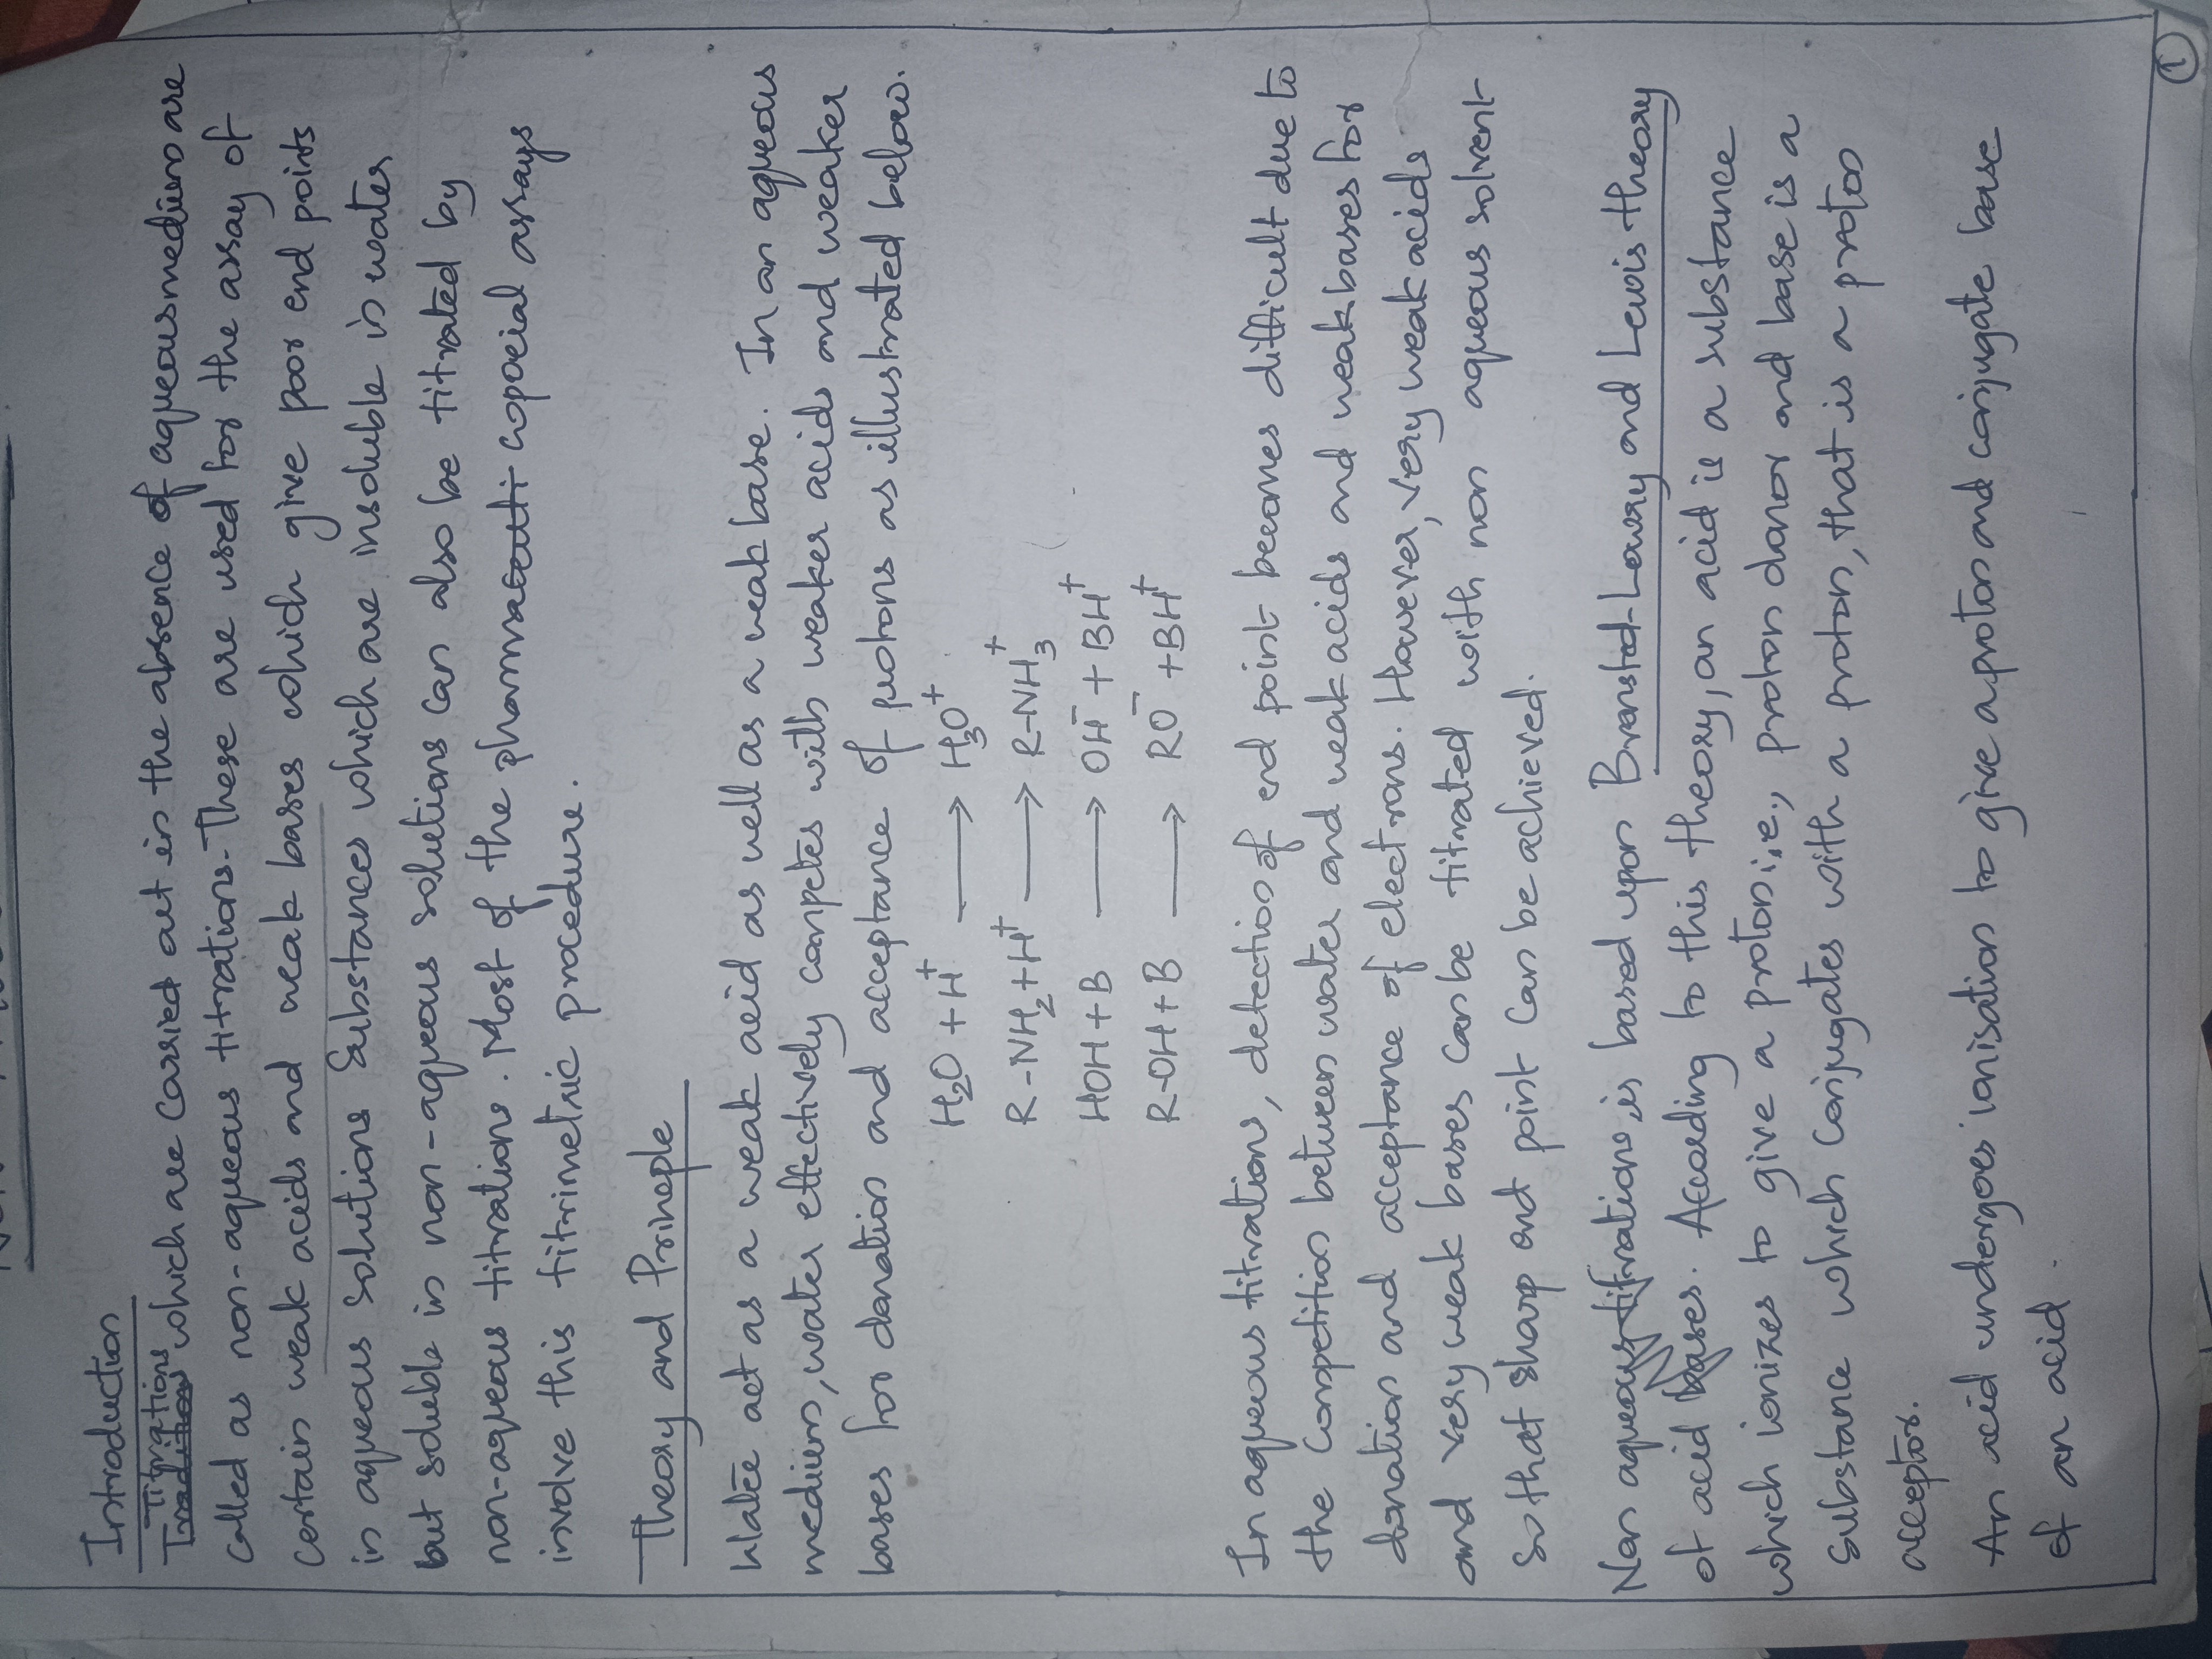 Introduction
Titrations
which are carried out in the absence of aqueous medium are
called as non-aqueous titrations. These are used for the assay of
certain weak acids and weak bases which give poor end points
in aqueous solutions Substances which are insoluble in water
but soluble in non-aqueous solutions can also be titrated by
non-aqueous titrations. Most of the pharmaceuti copoeial assays
involve this titrimetric procedure.
Theory and Prineple
Water act as a weak acid as well as a weak base. In an aqueous
medium, water effectively competes with weaker acids and weaker
bases for donation and acceptance of protons as illustrated below.
H₂O + H⁺ ⟶ H₃O⁺
R-NH₂ + H⁺ ⟶ R-NH₃⁺
HOH + B ⟶ OH⁻ + BH⁺
R-OH + B ⟶ RO⁻ + BH⁺
In aqueous titrations, detection of end point becomes difficult due to
the competition between water and weak acids and weak bases for
donation and acceptance of electrons. However, very weak acids
and very weak bases can be titrated with non aqueous solvent
so that sharp end point can be achieved.
Non aqueous titrations, is based upon Bronsted-Lowry and Lewis theory
of acid bases. According to this theory, an acid is a substance
which ionizes to give a proton i,e., proton donor and base is a
substance which conjugates with a proton, that is a proton
acceptor.
An acid undergoes ionisation to give a proton and conjugate base
of an acid.
1